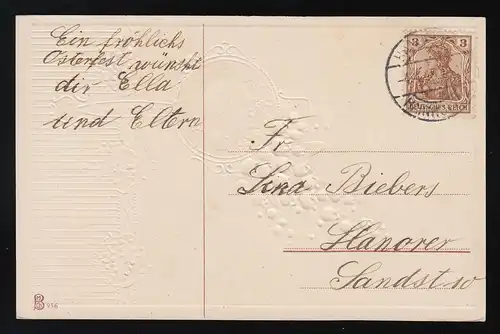 Ein fröhlichs
Osterfest wünscht
dir Ella
und Eltern
3 3
DEUTSCHES REICH
Fr
Biebers
Hanover
Sandst 10
B 956